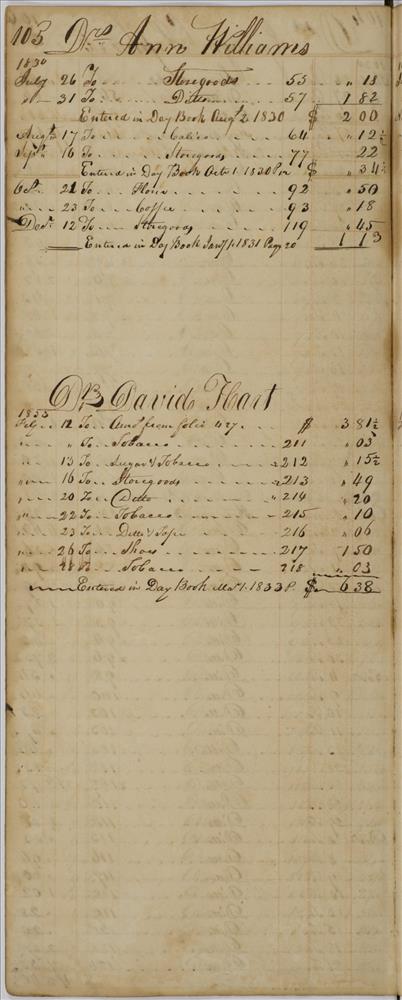 105 Drs Ann Williams
1830
July 26 To Storegoods 55 " 18
" 31 To Ditto 57 1 82
Entered in Day Book Augt 2 1830 $ 2 00
Augt 17 To Calico 64 " 12½
Sept 16 To Storegoods 77 22
Entered in Day Book Octr 1 1830 Pa $ " 34½
Oct 21 To Flour 92 " 50
" 23 To Coffee 93 " 18
Decr 12 To Storegoods 119 " 45
Entered in Day Book Jany 1 1831 Page 20 1 13
Drs David Hart
1833
Feby 12 To Amt from folio 427 $ 3 81½
" " To Tobacco 211 " 03
" 13 To Sugar & Tobacco 212 " 15½
" 16 To Storegoods 213 " 49
" 20 To Ditto 214 " 20
" 22 To Tobacco 215 " 10
" 23 To Ditto & 216 " 06
" 26 To Shoes 217 1 50
" 28 To Tobacco 218 " 03
Entered in Day Book Mar 1 1833 P. $ 6 38